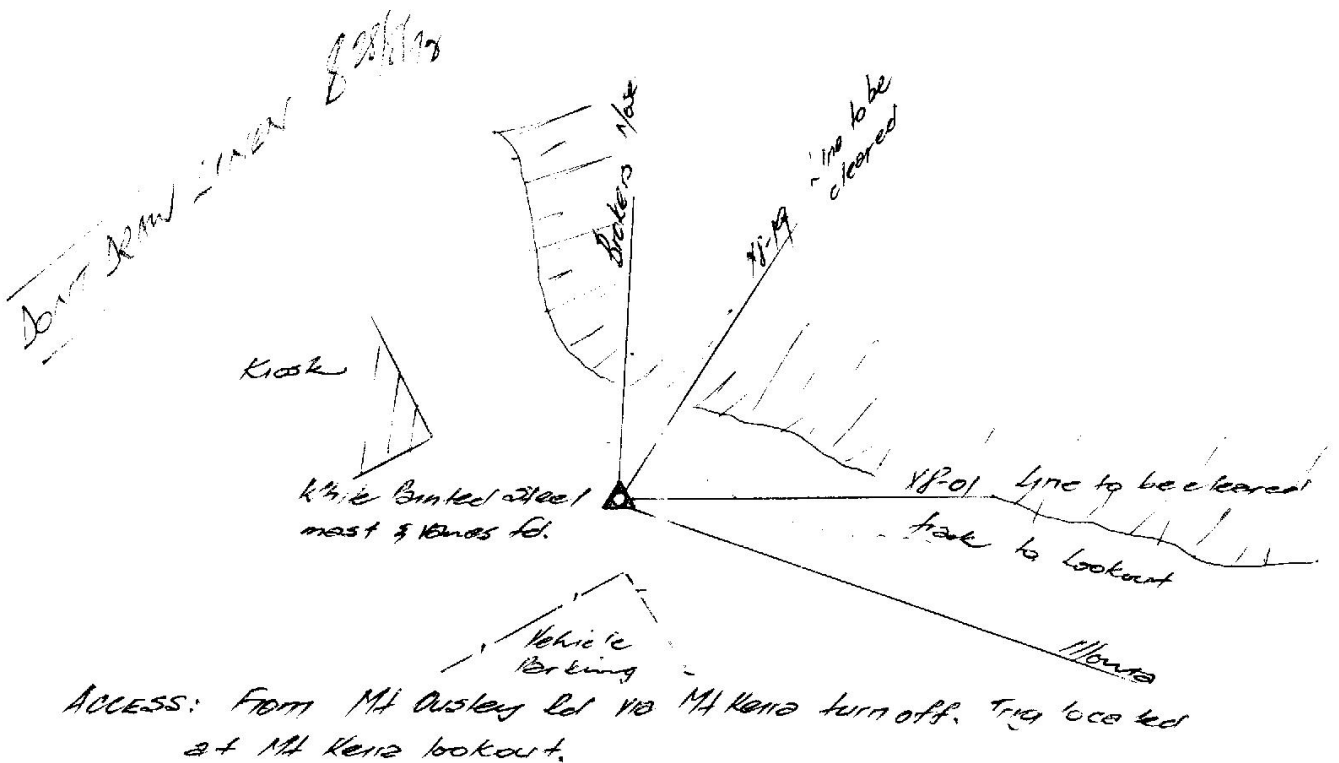 DONT DRAW LINEN
Brokers Nose
Line to be
cleared
Kiosk
White Painted Steel
mast & vanes fd.
Line to be cleared
track to lookout
Vehicle
Parking
Illowra
ACCESS: From Mt Ousley Rd via Mt Keira turn off. Trig located
at Mt Keira lookout.